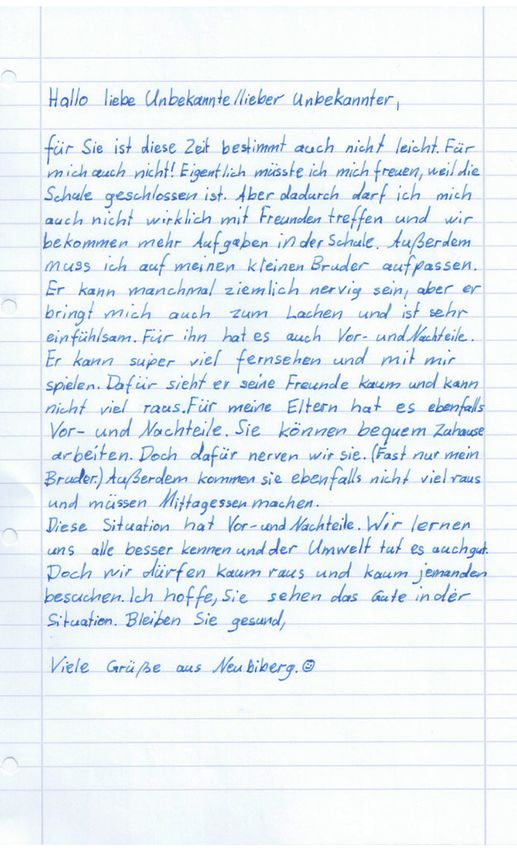 Hallo liebe Unbekannte/lieber Unbekannter,
für Sie ist diese Zeit bestimmt auch nicht leicht. Für
mich auch nicht! Eigentlich müsste ich mich freuen, weil die
Schule geschlossen ist. Aber dadurch darf ich mich
auch nicht wirklich mit Freunden treffen und wir
bekommen mehr Aufgaben in der Schule. Außerdem
muss ich auf meinen kleinen Bruder aufpassen.
Er kann manchmal ziemlich nervig sein, aber er
bringt mich auch zum Lachen und ist sehr
einfühlsam. Für ihn hat es auch Vor- und Nachteile.
Er kann super viel fernsehen und mit mir
spielen. Dafür sieht er seine Freunde kaum und kann
nicht viel raus. Für meine Eltern hat es ebenfalls
Vor- und Nachteile. Sie können bequem Zuhause
arbeiten. Doch dafür nerven wir sie. (Fast nur mein
Bruder.) Außerdem kommen sie ebenfalls nicht viel raus
und müssen Mittagessen machen.
Diese Situation hat Vor- und Nachteile. Wir lernen
uns alle besser kennen und der Umwelt tut es auch gut.
Doch wir dürfen kaum raus und kaum jemanden
besuchen. Ich hoffe, Sie sehen das Gute in der
Situation. Bleiben Sie gesund,
Viele Grüße aus Neubiberg. ☺